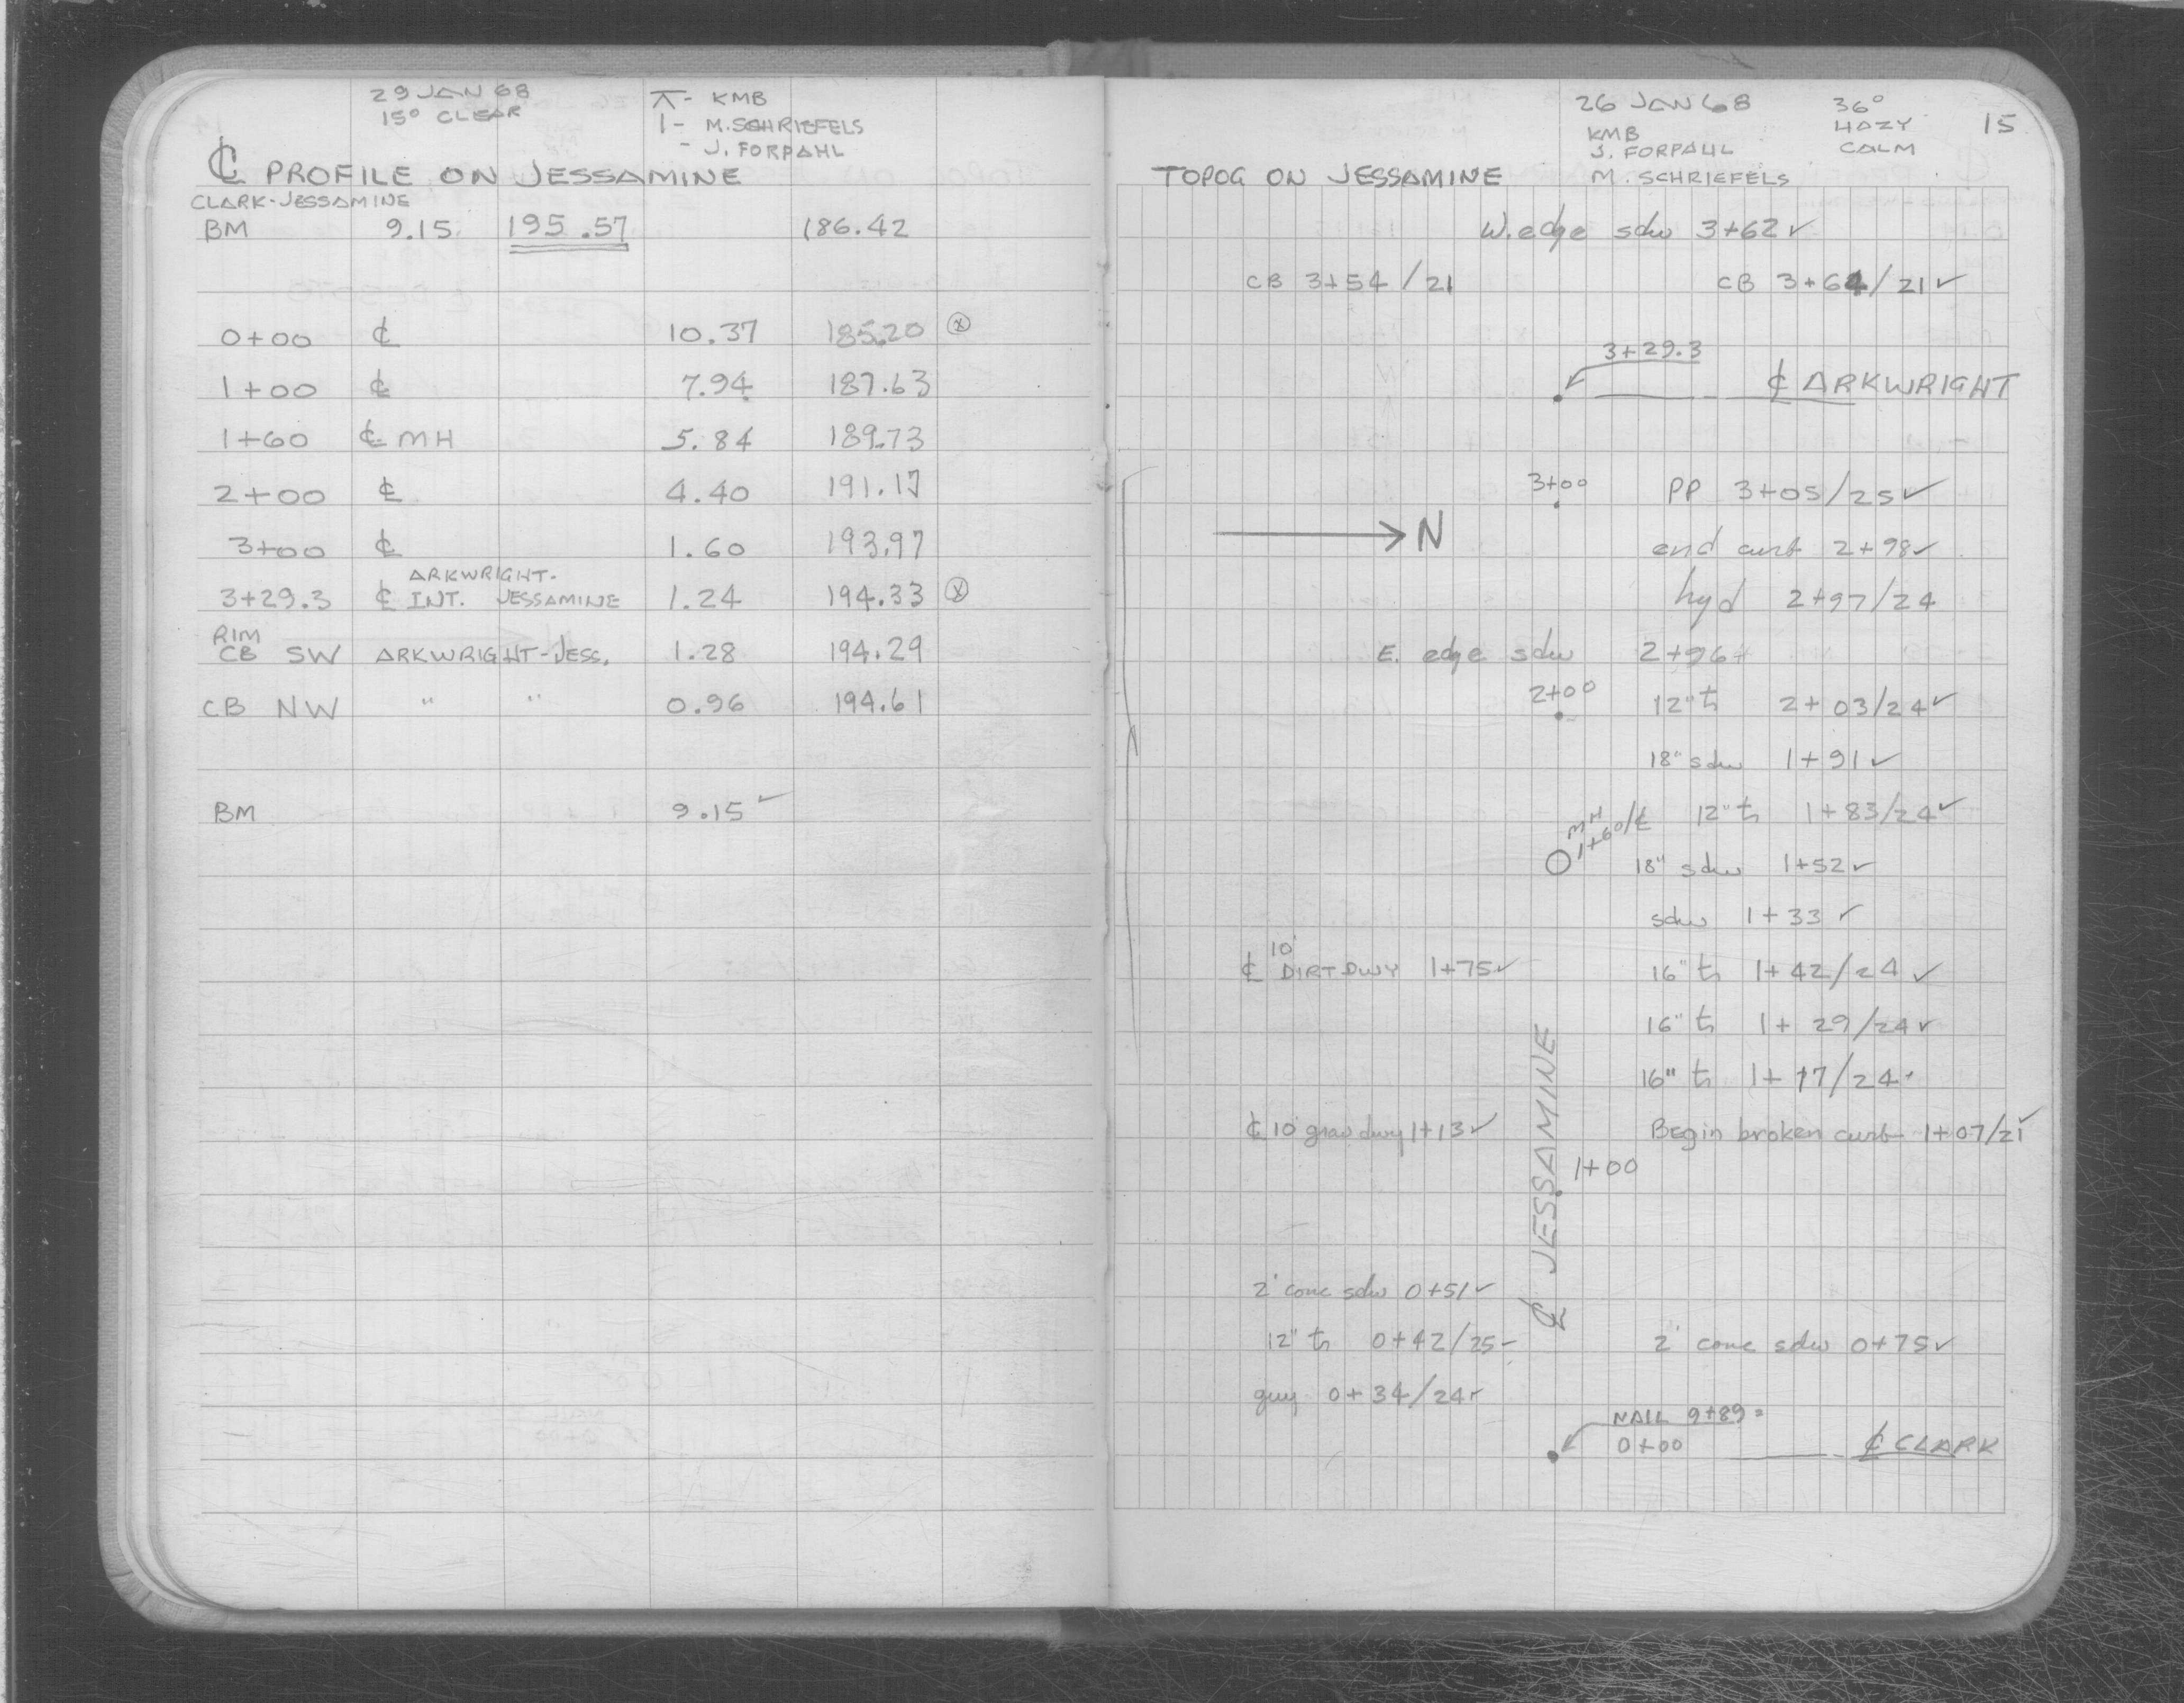 29 JAN 68
15° CLEAR
⊼ - KMB
| - M. SCHRIEFELS
- J. FORPAHL
℄ PROFILE ON JESSAMINE
CLARK-JESSAMINE
BM 9.15 195.57 186.42
0+00 ℄ 10.37 185.20 ⓧ
1+00 ℄ 7.94 187.63
1+60 ℄ MH 5.84 189.73
2+00 ℄ 4.40 191.17
3+00 ℄ 1.60 193.97
ARKWRIGHT-
3+29.3 ℄ INT. JESSAMINE 1.24 194.33 ⓧ
RIM
CB SW ARKWRIGHT-JESS. 1.28 194.29
CB NW " " 0.96 194.61
BM 9.15 ✓
26 JAN 68 36° 15
KMB HAZY
J. FORPAHL CALM
TOPOG ON JESSAMINE M. SCHRIEFELS
W. edge sdw 3+62 ✓
CB 3+54/21 CB 3+64/21 ✓
3+29.3
℄ ARKWRIGHT
3+00 PP 3+05/25 ✓
N
end curb 2+98 ✓
hyd 2+97/24
E. edge sdw 2+96+
2+00 12" tr 2+03/24 ✓
18" sdw 1+91 ✓
MH 1+60/℄ 12" tr 1+83/24 ✓
18" sdw 1+52 ✓
sdw 1+33 ✓
10'
℄ DIRT DWY 1+75 ✓ 16" tr 1+42/24 ✓
16" tr 1+29/24 ✓
16" tr 1+17/24 ✓
℄ 10' grav dwy 1+13 ✓ Begin broken curb 1+07/21 ✓
1+00
℄ JESSAMINE
2' conc sdw 0+51 ✓
12" tr 0+42/25 - 2' conc sdw 0+75 ✓
guy 0+34/24 ✓
NAIL 9+89 =
0+00 ℄ CLARK